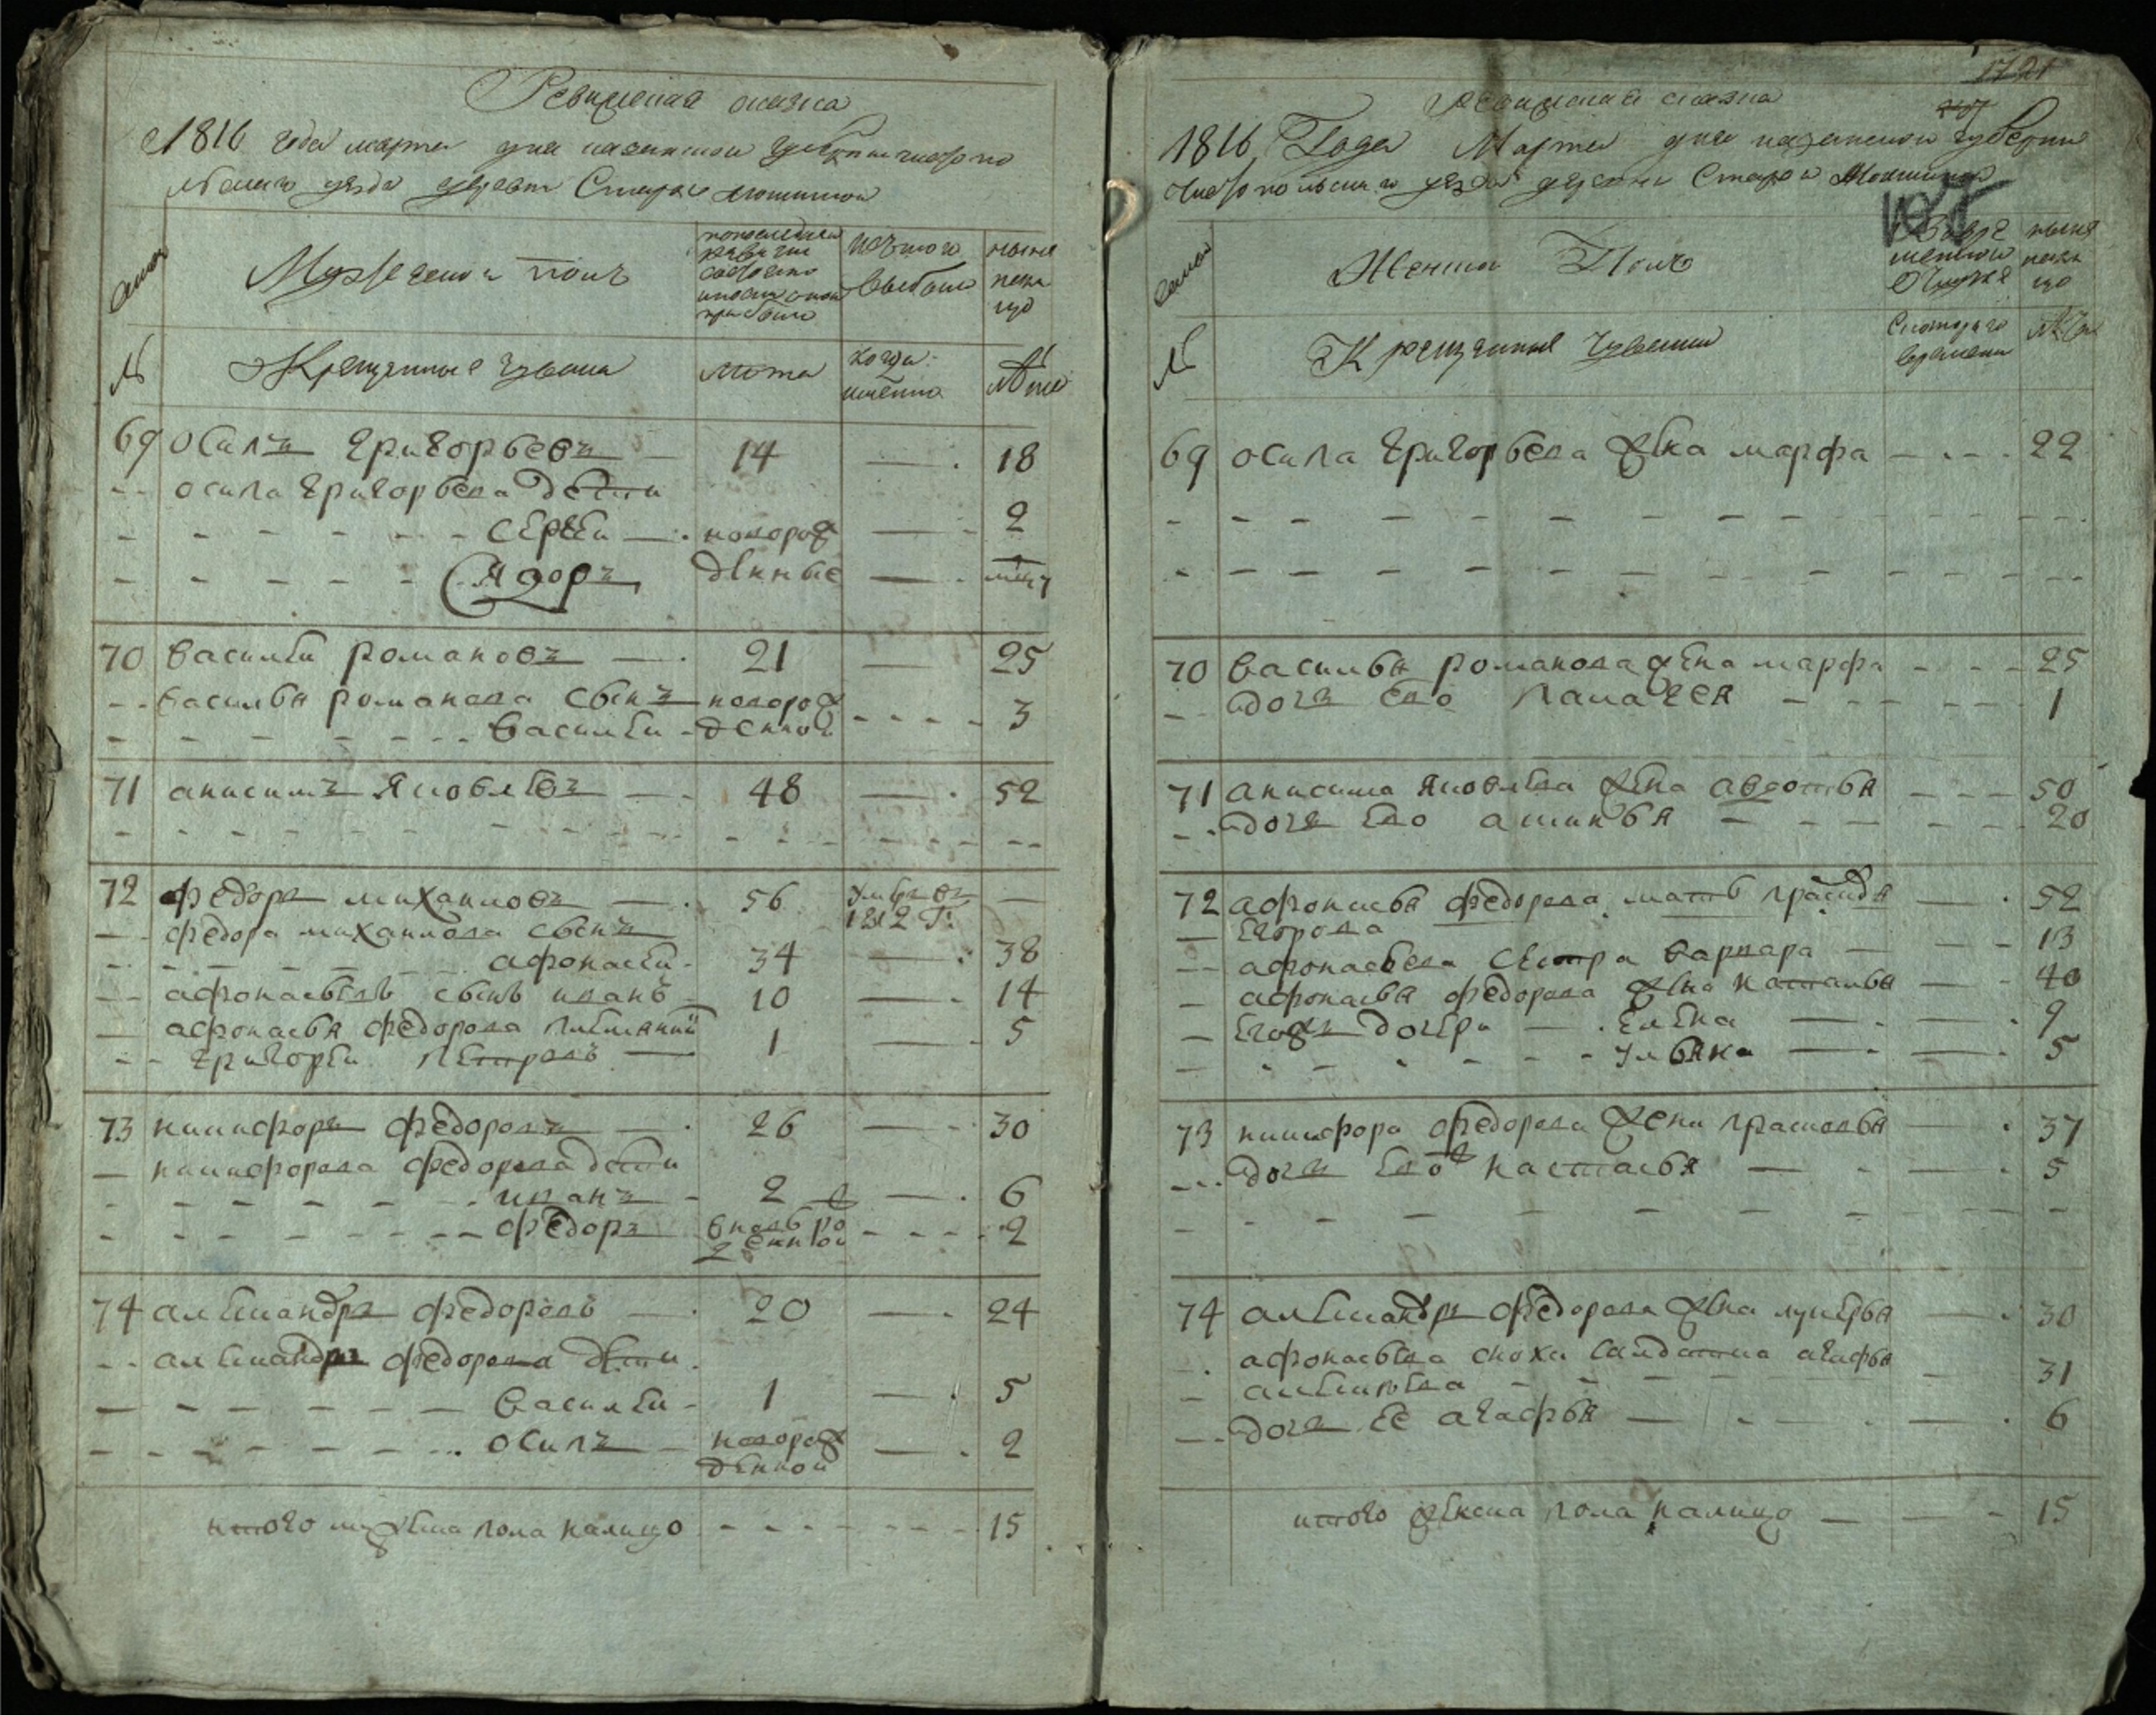 Ревижская сказка
1816 года марта дня казанской губернии чистопо
льскаго уезда деревни Старой мокшиной
семьи
Мужеской полъ
по последней ревизии состояло и после оной прибыло
изъ того выбыло
ныне налицо
№
Крещенные чуваша
лета
когда именно
лета
69 осипъ григорьевъ — 14 — 18
осипа григорьева дети
сергей — новорож — 2
Ядоръ денные —
70 василей романовъ — 21 — 25
василья романова сынъ новорож
василей денной 3
71 анисимъ яковлевъ — 48 — 52
72 федоръ михаиловъ — 56 умре въ 1812 г: —
федора михаилова сынъ
афонасей 34 — 38
афонасьевъ сынъ иванъ 10 — 14
афонасья федорова племяний
григорей петровъ — 1 — 5
73 никифоръ федоровъ — 26 — 30
никифорова федорова дети
иванъ 2 — 6
федоръ вновь ро
денной 2
74 александръ федоровъ — 20 — 24
александръ федорова дети
василей 1 — 5
осипъ новорож
денной — 2
итого мужеска пола налицо 15
1721
Ревижская сказка
1816 Года Марта дня казанской губернии
чистопольскаго уезда деревни Старой Мокшиной
семьи
Женска Полъ
во временной отлучке
ныне налицо
№
Крещенные чуваши
с котораго времени
лета
69 осипа григорьева жена марфа 22
70 василья романова жена марфа 25
дочь ево палагея 1
71 анисима яковлева жена авдотья 50
дочь ево акинья 20
72 афонасья федорова мать праскдв — 52
егорова
афонасьева сестра варвара — 13
афонасья федорова жена настасья — 40
егожъ дочери — елена — 9
ульяна — 5
73 никифора федорова жена прасковья — 37
дочь ево настасья — 5
74 александръ федорова жена лукерья — 30
афонасьева сноха салдатка агафья
алексеева 31
дочь ее агафья — 6
итого женска пола налицо — 15